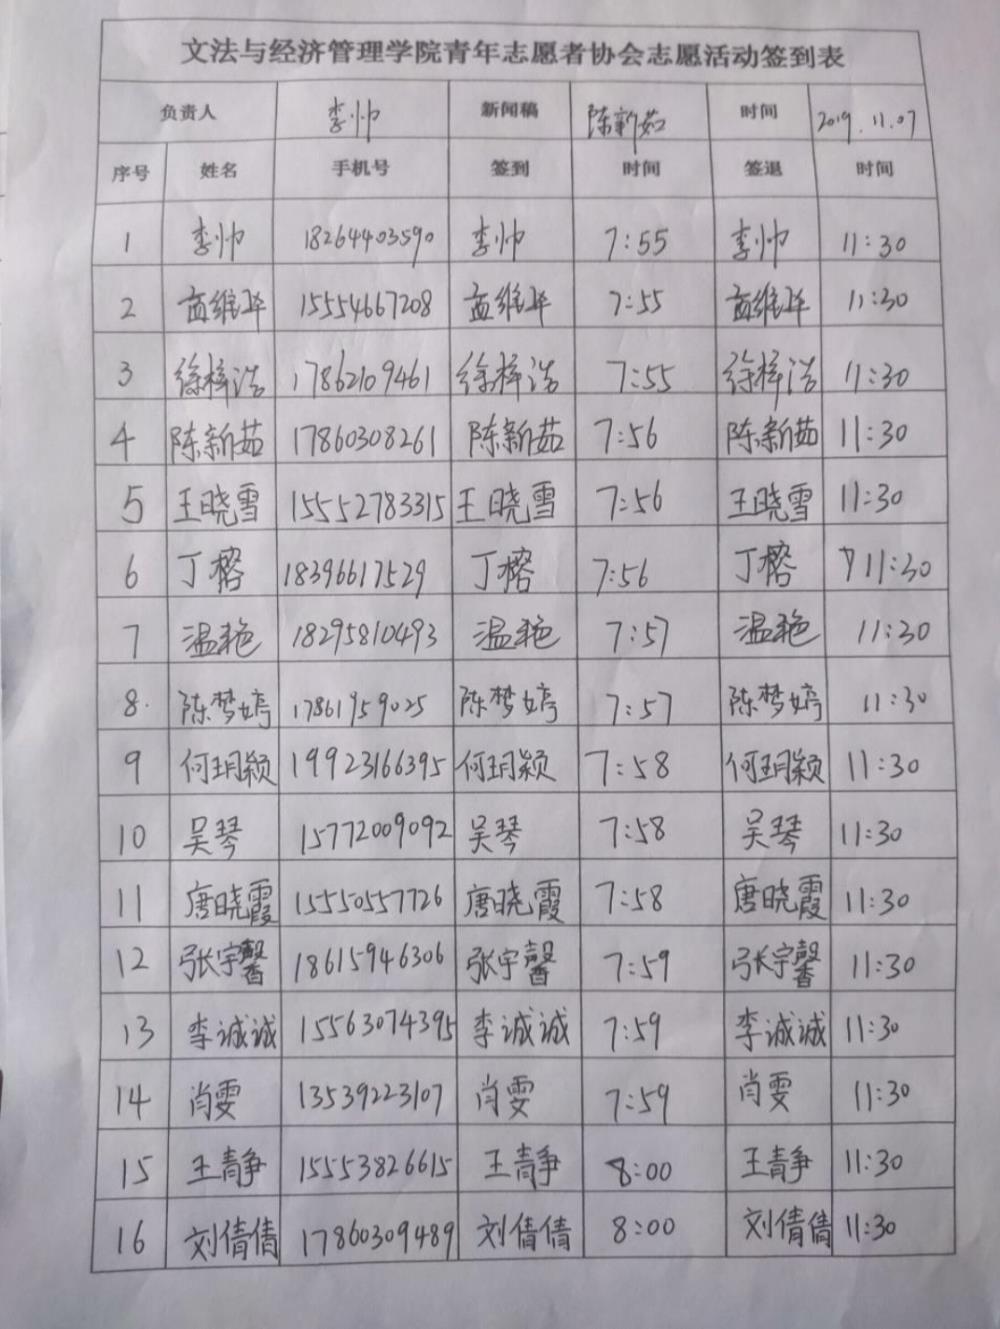 文法与经济管理学院青年志愿者协会志愿活动签到表
负责人 李帅 新闻稿 陈新茹 时间 2019.11.07
序号 姓名 手机号 签到 时间 签退 时间
1 李帅 18264403590 李帅 7:55 李帅 11:30
2 15554667208 7:55 11:30
3 徐梓浩 17862109461 徐梓浩 7:55 徐梓浩 11:30
4 陈新茹 17860308261 陈新茹 7:56 陈新茹 11:30
5 王晓雪 15552783315 王晓雪 7:56 王晓雪 11:30
6 丁榕 18396617529 丁榕 7:56 丁榕 11:30
7 温艳 18295810493 温艳 7:57 温艳 11:30
8. 陈梦婷 17861959025 陈梦婷 7:57 陈梦婷 11:30
9 何玥颖 19923166395 何玥颖 7:58 何玥颖 11:30
10 吴琴 15772009092 吴琴 7:58 吴琴 11:30
11 唐晓霞 15550557726 唐晓霞 7:58 唐晓霞 11:30
12 张宇馨 18615946306 张宇馨 7:59 张宇馨 11:30
13 李诚诚 15563074395 李诚诚 7:59 李诚诚 11:30
14 肖雯 13539223107 肖雯 7:59 肖雯 11:30
15 王静 15553826615 王静 8:00 王静 11:30
16 刘倩倩 17860309489 刘倩倩 8:00 刘倩倩 11:30